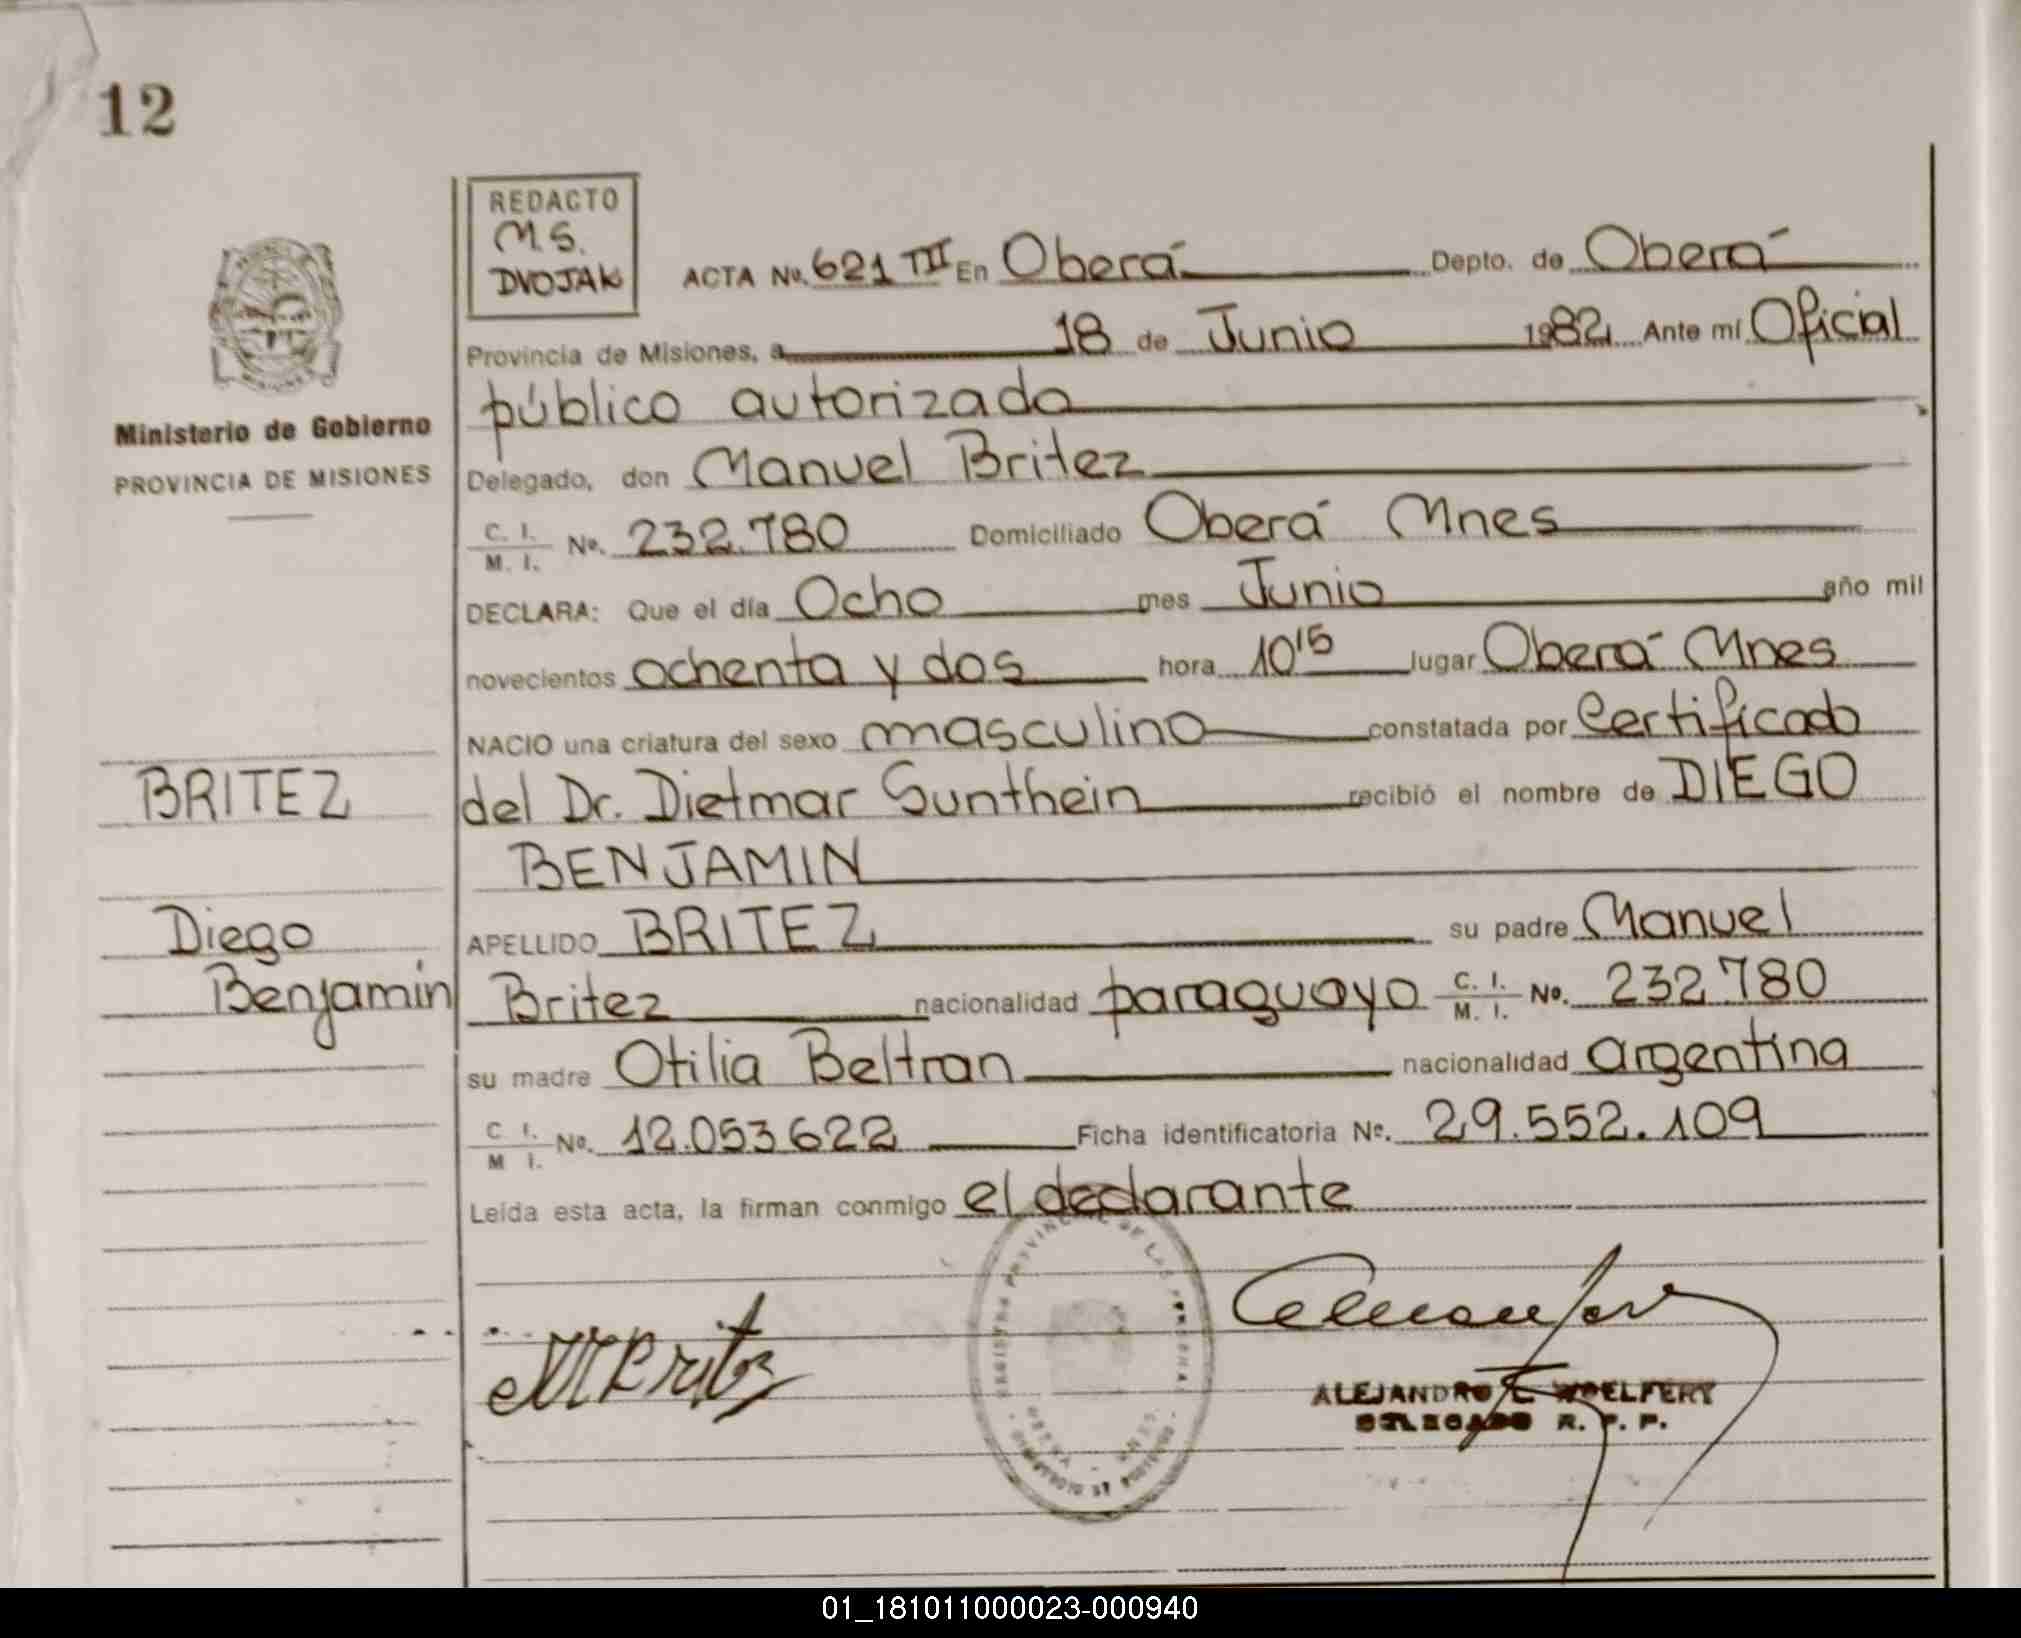 12
REDACTO
M.S.
DVOJAK
ACTA No. 621 TII En Oberá Depto. de Oberá
Provincia de Misiones, a 18 de Junio 1982 Ante mí Oficial
público autorizado
Ministerio de Gobierno
PROVINCIA DE MISIONES
Delegado, don Manuel Britez
C. I. / M. I. No. 232.780 Domiciliado Oberá Mnes
DECLARA: Que el día Ocho mes Junio año mil
novecientos ochenta y dos hora 10 15 lugar Oberá Mnes
NACIO una criatura del sexo masculino constatada por Certificado
BRITEZ
del Dr. Dietmar Sunthein recibió el nombre de DIEGO
BENJAMIN
Diego
Benjamín
APELLIDO BRITEZ su padre Manuel
Britez nacionalidad paraguayo C. I. / M. I. No. 232.780
su madre Otilia Beltran nacionalidad argentina
C I. / M I. No. 12.053.622 Ficha identificatoria No. 29.552.109
Leída esta acta, la firman conmigo el declarante
REGISTRO PROVINCIAL DE LAS PERSONAS
M Britez
ALEJANDRO E. WOELFERT
DELEGADO R. P. P.
01_181011000023-000940